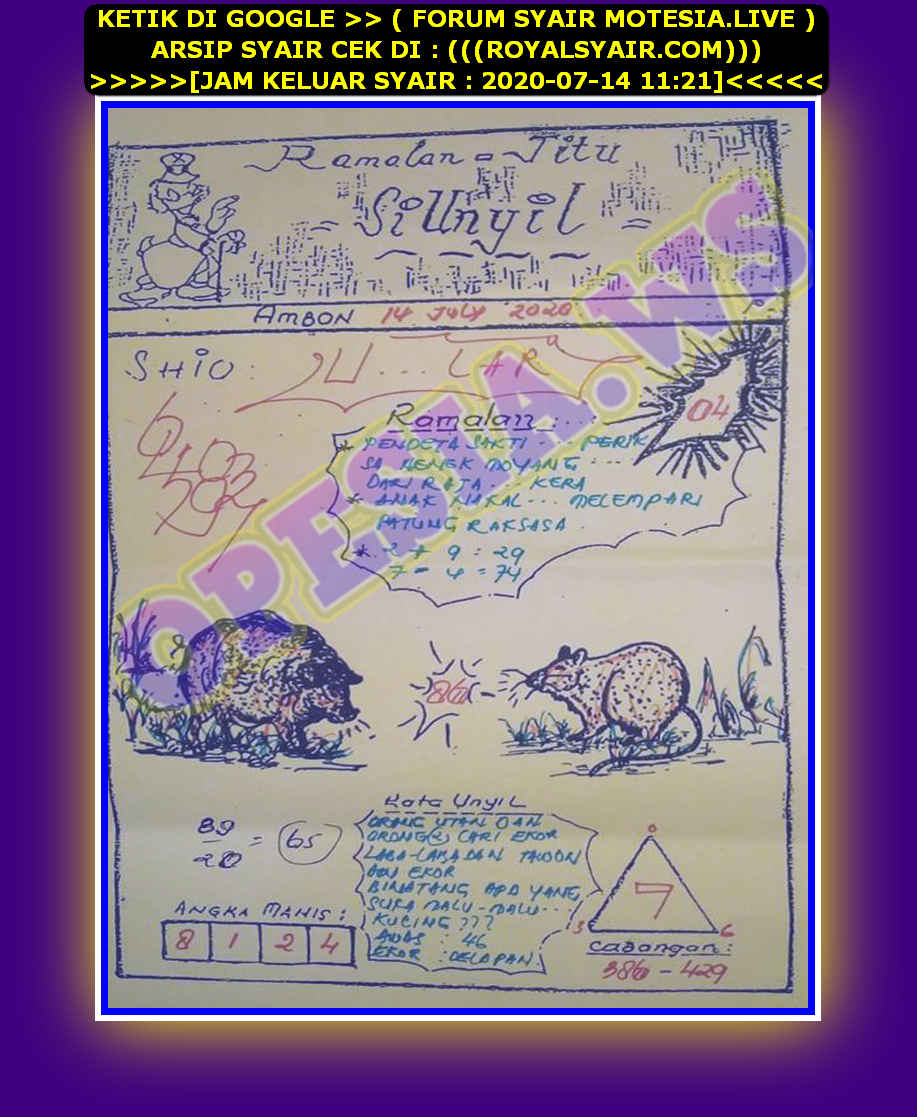 KETIK DI GOOGLE >> ( FORUM SYAIR MOTESIA.LIVE )
ARSIP SYAIR CEK DI : (((ROYALSYAIR.COM)))
>>>>>[JAM KELUAR SYAIR : 2020-07-14 11:21]<<<<<
Ramalan = Jitu
= SiUnyil =
AMBON 14 JULY 2020
SHIO : U...LAR
04
Ramalan : ....
* PENDETA SAKTI ... PERIK
SA NENEK MOYANG ...
DARI RAJA ... KERA
* ANAK NAKAL ... MELEMPARI
PATUNG RAKSASA .
* 2 + 9 = 29
7 - 4 = 74
OPESIA.WS
86
Kata Unyil
ORANG UTAN DAN
ORONG(2) CARI EKOR
LABA-LABA DAN TAWON
EKOR
BINATANG APA YANG
SUKA MALU-MALU...
KUCING ???
AWAS : 46
EKOR : DELAPAN
89
20 = 65
ANGKA MANIS :
8 1 2 4
0
7
3 6
Cabangan :
386 - 429